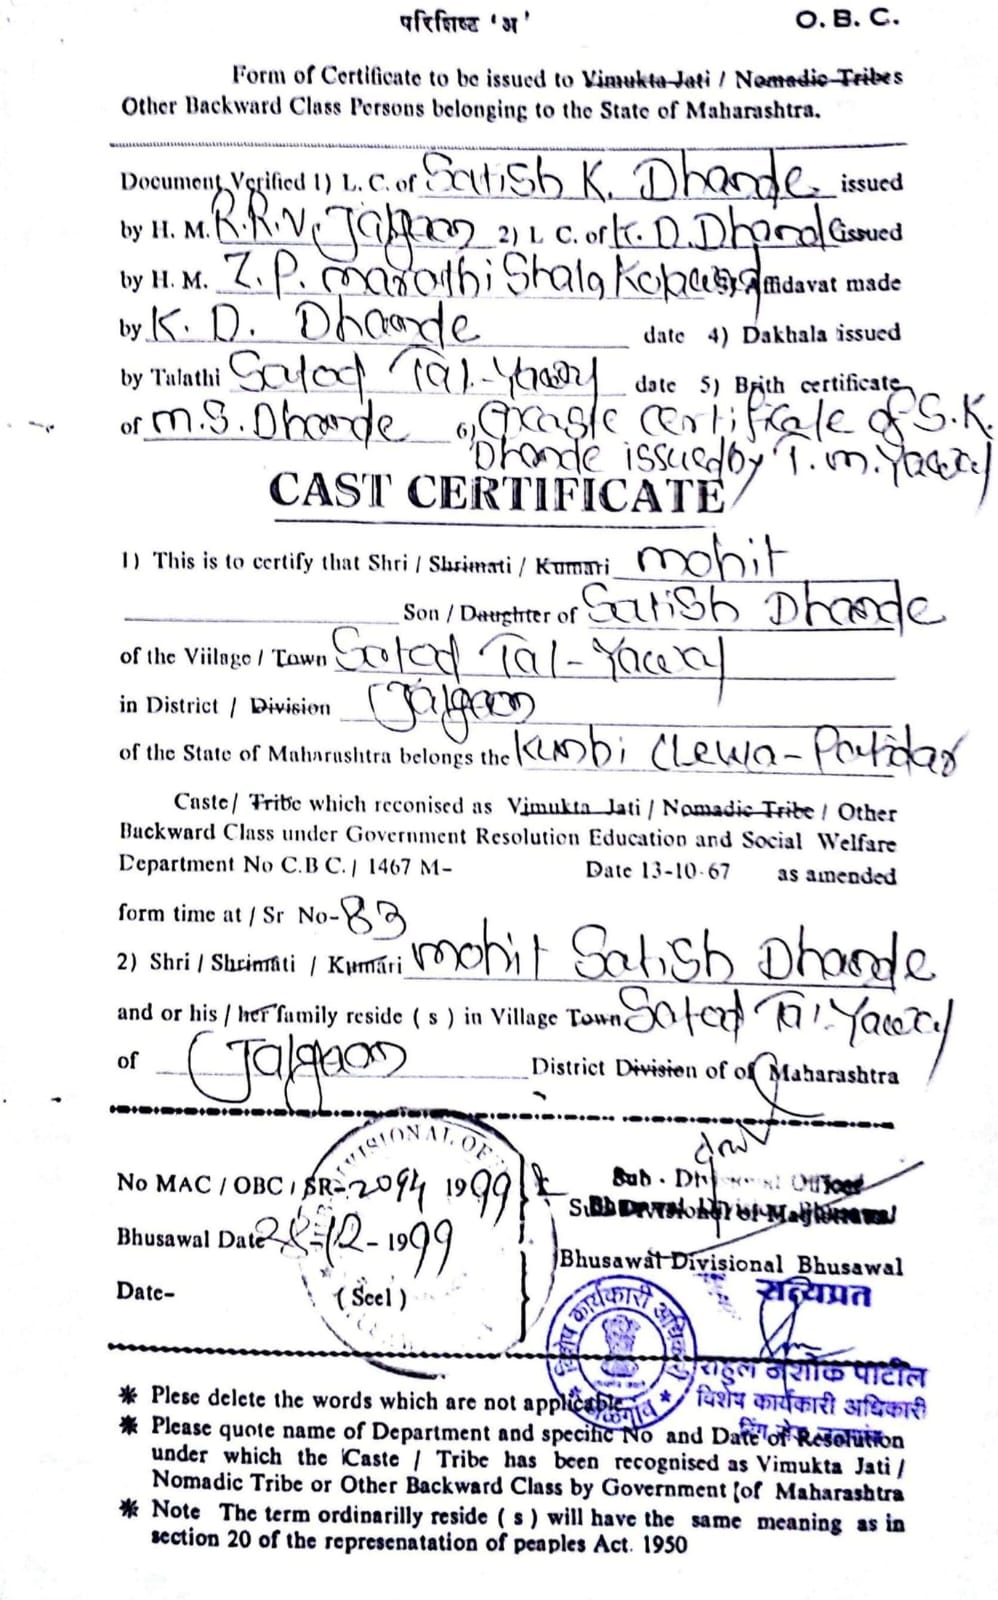 परिशिष्ट 'अ'
O. B. C.
Form of Certificate to be issued to Vimukta Jati / Nomadic Tribes
Other Backward Class Persons belonging to the State of Maharashtra.
Document Verified 1) L. C. of Satish K. Dhande issued
by H. M. R.R.V. Jalgaon 2) L C. of K. D. Dhande issued
by H. M. Z. P. marathi Shala 3) Affidavat made
by K. D. Dhande date 4) Dakhala issued
by Talathi Satod Tal.-Yawal date 5) Brith certificate
of M.S. Dhande 6) certificate of S.K.
Dhande issued by T. M. Yawal
CAST CERTIFICATE
1) This is to certify that Shri / Shrimati / Kumari mohit
Son / Daughter of Satish Dhande
of the Viilage / Town Satod Tal-Yawal
in District / Division Jalgaon
of the State of Maharashtra belongs the Kunbi (Lewa-Patidar
Caste / Tribe which reconised as Vimukta Jati / Nomadic Tribe / Other
Backward Class under Government Resolution Education and Social Welfare
Department No C.B C. / 1467 M- Date 13-10-67 as amended
form time at / Sr No-83
2) Shri / Shrimati / Kumari mohit Satish Dhande
and or his / her family reside ( s ) in Village Town Satod Tal. Yawal
of Jalgaon District Division of of Maharashtra
No MAC / OBC / SR-2094 1999
Sub - Divisional Officer
Bhusawal Date 28-12-1999
Bhusawal Divisional Bhusawal
Date-
( Scel )
सत्यप्रत
विशेष कार्यकारी अधिकारी
जळगांव
राहुल अशोक पाटील
विशेष कार्यकारी अधिकारी
✱ Plese delete the words which are not applicable
✱ Please quote name of Department and specific No and Date of Resolution
under which the Caste / Tribe has been recognised as Vimukta Jati /
Nomadic Tribe or Other Backward Class by Government [of Maharashtra
✱ Note The term ordinarilly reside ( s ) will have the same meaning as in
section 20 of the represenatation of peaples Act. 1950